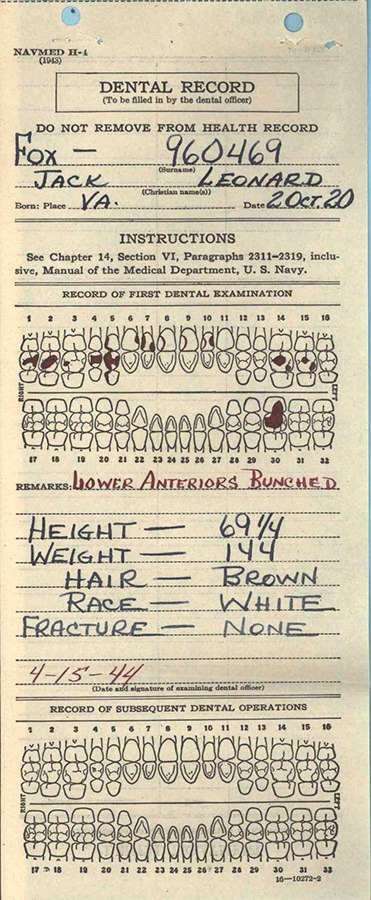 NAVMED H-4
(1943)
DENTAL RECORD
(To be filled in by the dental officer)
DO NOT REMOVE FROM HEALTH RECORD
FOX — 960469
(Surname)
JACK LEONARD
(Christian name(s))
Born: Place VA. Date 2 OCT. 20
INSTRUCTIONS
See Chapter 14, Section VI, Paragraphs 2311–2319, inclu-
sive, Manual of the Medical Department, U. S. Navy.
RECORD OF FIRST DENTAL EXAMINATION
1 2 3 4 5 6 7 8 9 10 11 12 13 14 15 16
RIGHT LEFT
17 18 19 20 21 22 23 24 25 26 27 28 29 30 31 32
REMARKS: LOWER ANTERIORS BUNCHED
HEIGHT — 69 1/4
WEIGHT — 144
HAIR — BROWN
RACE — WHITE
FRACTURE — NONE
4-15-44
(Date and signature of examining dental officer)
RECORD OF SUBSEQUENT DENTAL OPERATIONS
1 2 3 4 5 6 7 8 9 10 11 12 13 14 15 16
RIGHT LEFT
17 18 19 20 21 22 23 24 25 26 27 28 29 30 31 32
16—10272-2